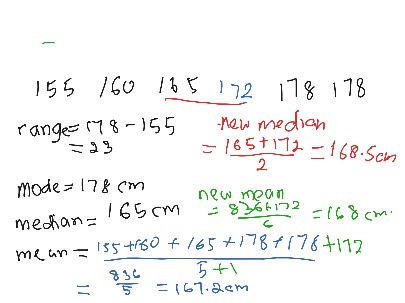 155 160 165 172 178 178
range = 178 - 155
= 23
new median
= 165+172 / 2 = 168.5cm
mode = 178 cm
median = 165 cm
new mean
= 836+172 / 6 = 168 cm.
mean = 155+160+165+178+178+172 / 5+1
= 836 / 5 = 167.2cm